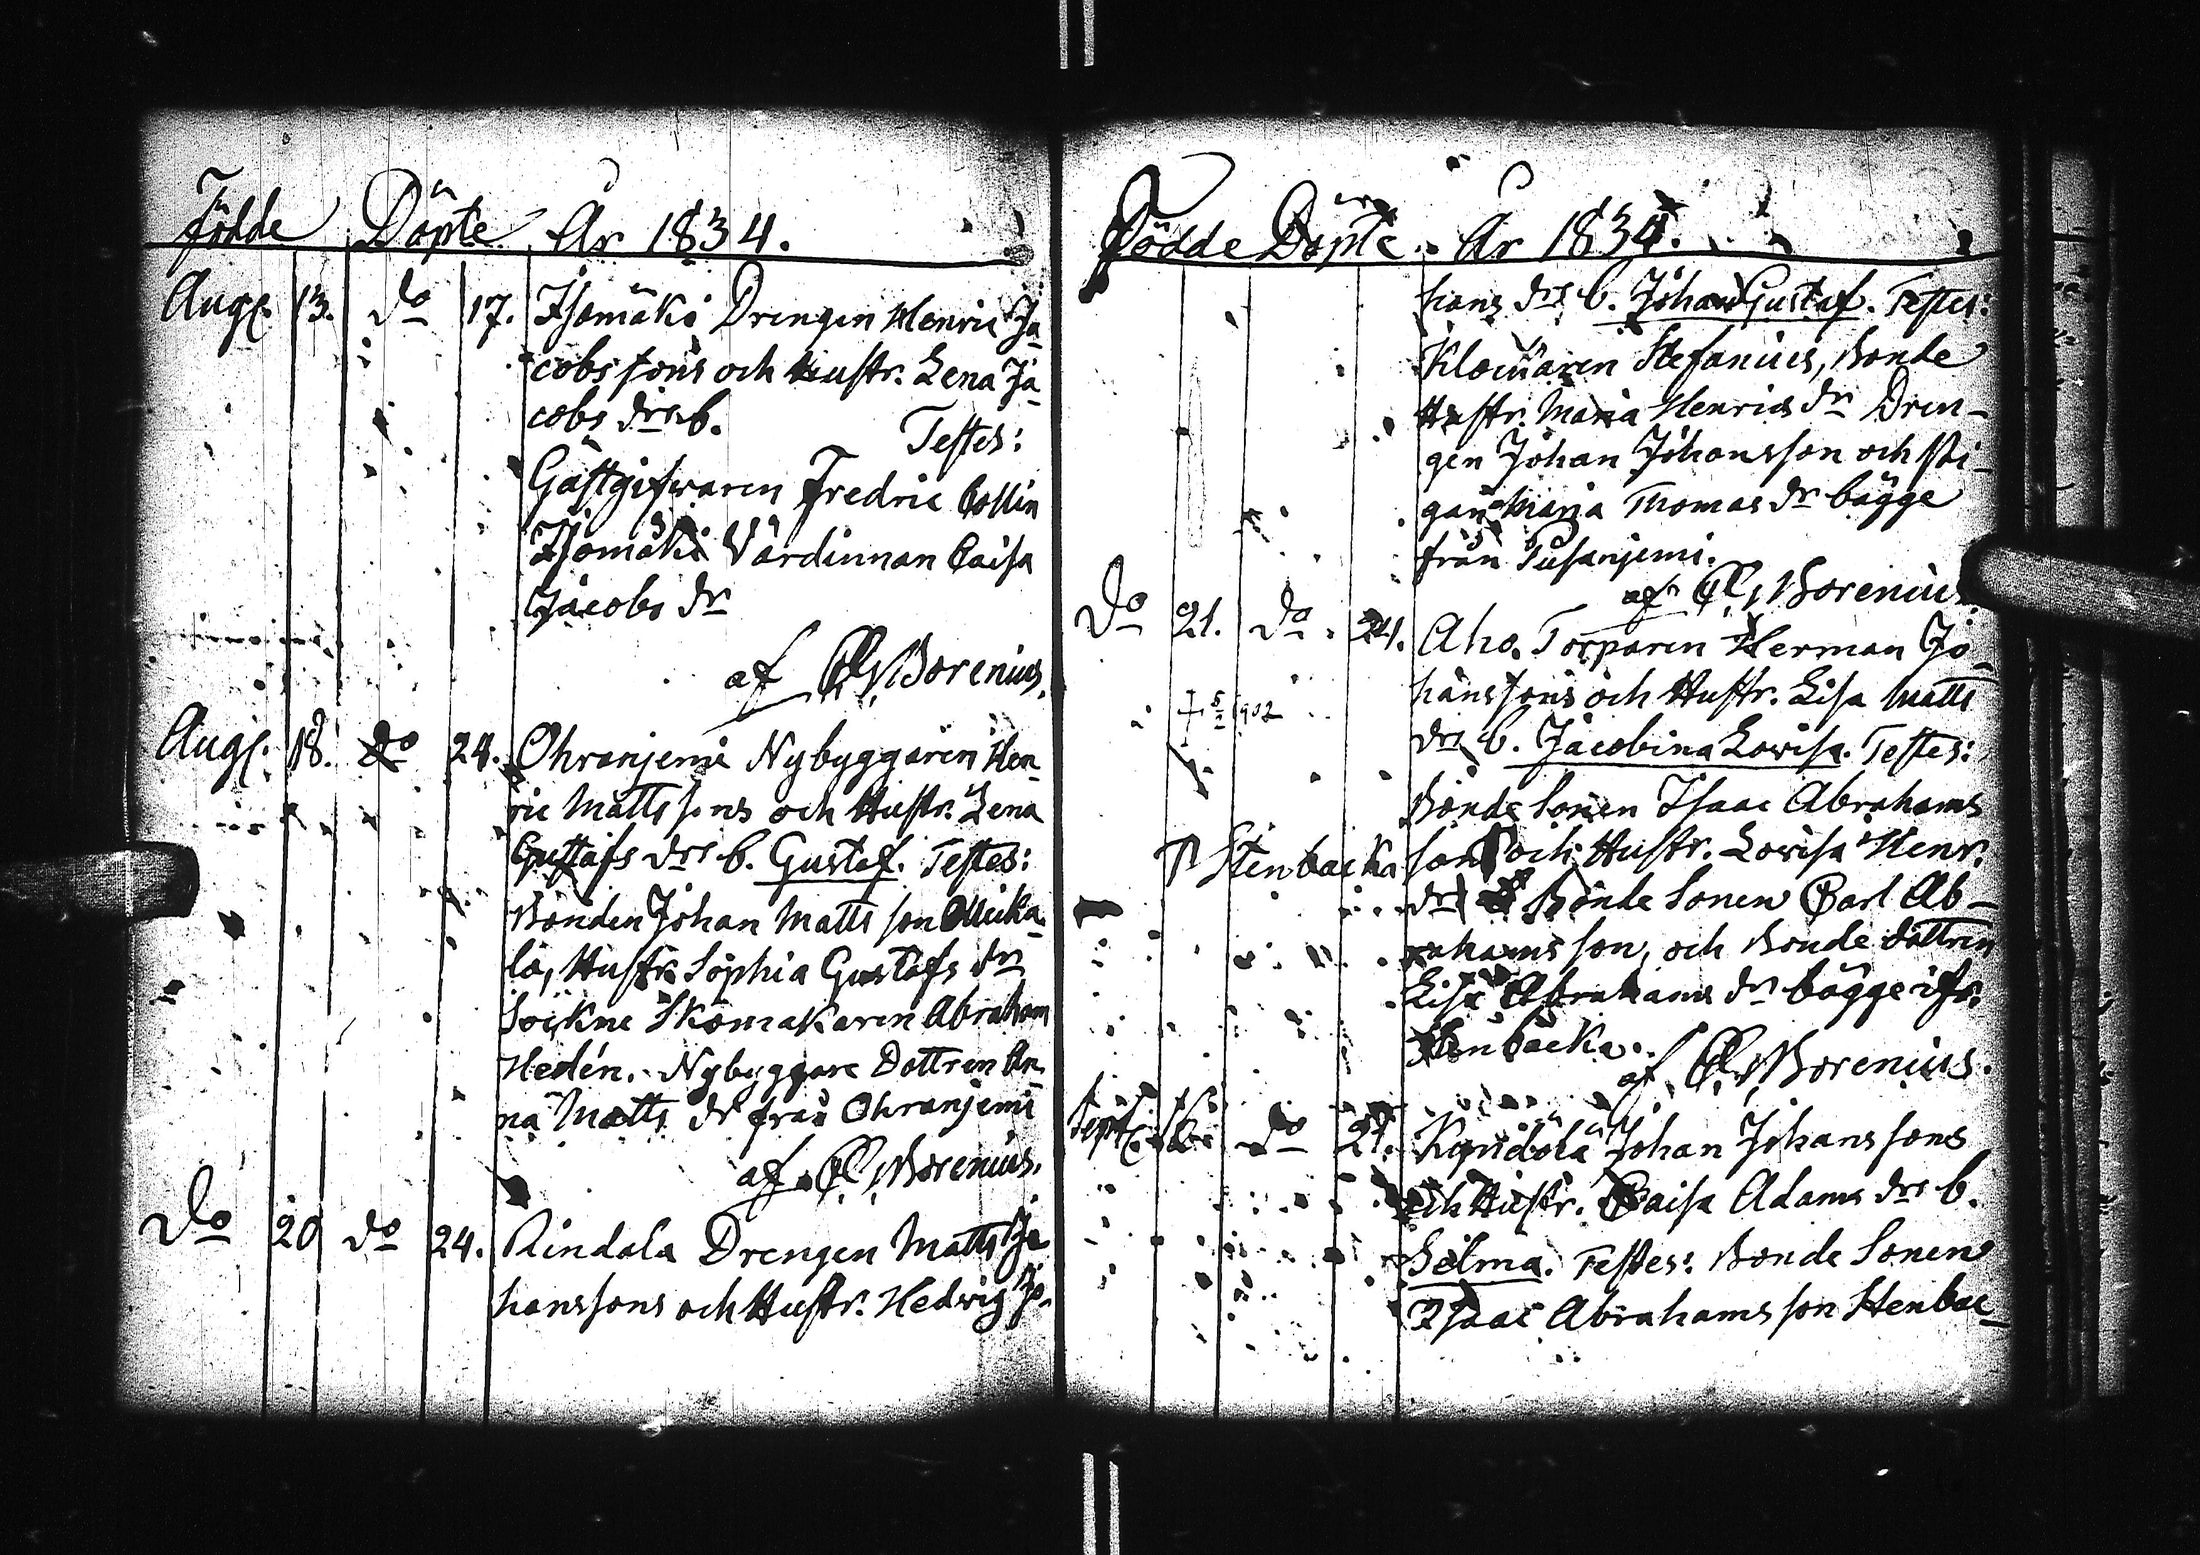 Födde Döpte År 1834.
Aug. 13. do 17. Isomäki Drengen Henric Ja
cobs sons och Hustr. Lena Ja
cobs drs b. Testes:
Gästgifwaren Fredric Collin
Isomäki Värdinnan Caisa
Jacobs dr
af Borenius.
Aug. 18. do 24. Ohranjemi Nybyggaren Hen
ric Matts sons och Hustr. Lena
Gustafs drs b. Gustaf. Testes:
Bonden Johan Matts son
la, Hustr. Sophia Gustafs dr
Sockne Skomakaren Abraham
Hedén. Nybyggare Dottren An
na Matts dr från Ohranjemi
af Borenius.
Do 20 do 24. Rindala Drengen Matts Jo
hanssons och Hustr. Hedvig Jo-
Födde Döpte År 1834.
hans drs b. Johan Gustaf. Testes:
Klockaren Stefanius, Bonde
Hustr. Maria Henrics dr Dren-
gen Johan Johansson och Pi-
gan Maria Thomas dr bägge
från Pusanjemi.
af Borenius.
Do 21. do. 24. Aho. Torparen Herman Jo
hanssons och Hustr. Lisa Matts
+ 5/2 1902
drs b. Jacobina Lovisa. Testes:
Bonde Sonen Isaac Abrahams
Stenbacka son och Hustr. Lovisa Henr.
dr Bonde Sonen Carl Ab-
rahams son, och Bonde dottren
Lisa Abrahams dr bägge ifr.
Stenbacka.
af Borenius.
Sept. do 21. Johan Johanssons
och Hustr. Caisa Adams drs b.
Selma. Testes: Bonde Sonen
Isaac Abrahams son Stenbac-